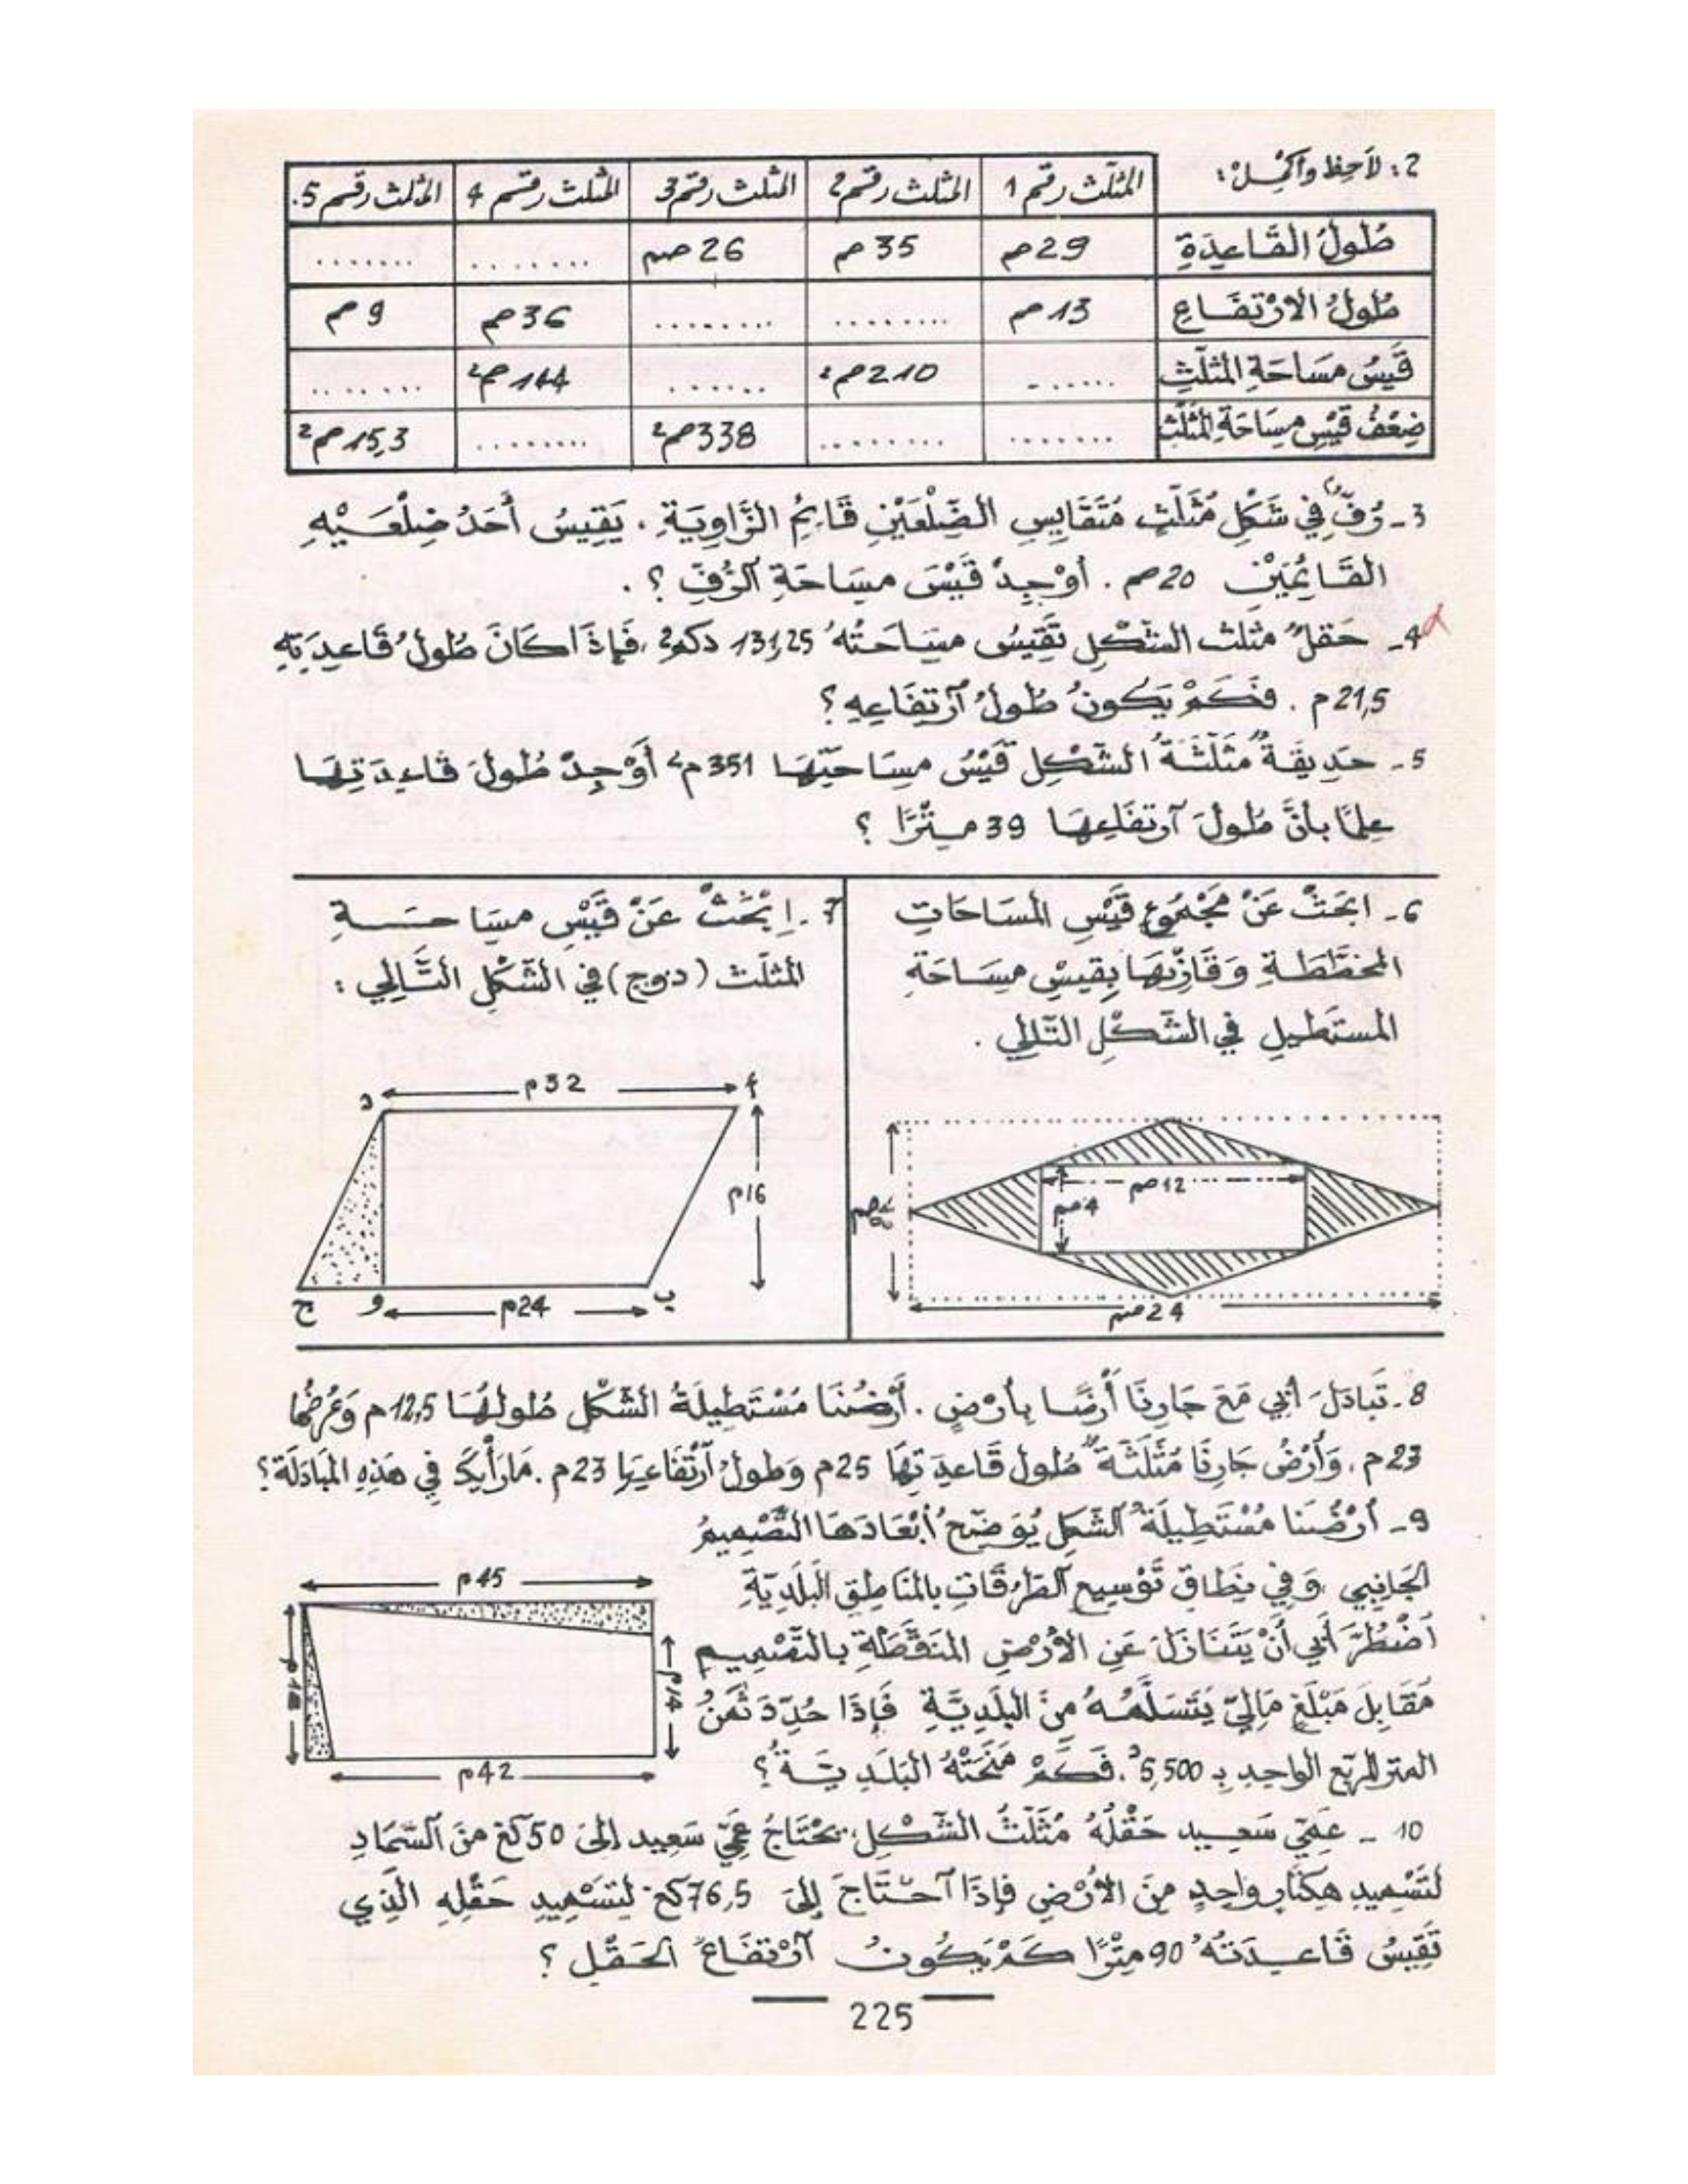 2: لاَحِظْ وأكْمِلْ:
المثلّث رقم 1 | المثلث رقم 2 | المثلث رقم 3 | المثلث رقم 4 | المثلث رقم 5.
طُولُ القَاعِدَةِ | 29م | 35م | 26صم | ........ | .......
طُولُ الارْتفَاعِ | 13م | ........ | ........ | 36م | 9م
قَيْسُ مسَاحَةِ المثلّثِ | ....... | 210م² | ....... | 144م² | ........
ضِعْفُ قَيْسِ مسَاحَةِ المُثلّث | ....... | ......... | 338م² | ........ | 15,3م²
3- رُفٌّ في شَكْلِ مُثَلّثٍ مُتَقَايِسِ الضّلْعَيْنِ قَائِمُ الزَّاوِيَةِ. يَقِيسُ أَحَدُ ضِلْعَيْهِ
القَائِمَيْنِ 20صم. أوْجِدْ قَيْسَ مسَاحَةِ الرُّفِّ؟.
4- حَقلٌ مثلث الشّكْلِ تَقِيسُ مسَاحَتُهُ 131,25 دكم²، فَإِذَا كَانَ طُولُ قَاعِدَتِهِ
21,5م. فَكَمْ يَكُونُ طُولُ آرْتِفَاعِهِ؟
5- حَدِيقَةٌ مُثلّثَةُ الشّكْلِ قَيْسُ مسَاحَتِهَا 351م² أَوْجِدْ طُولَ قاعِدَتِهَا
عِلمًا بأنَّ طُولَ آرتفَاعِهَا 39 مِتْرًا؟
6- ابحَثْ عَنْ مَجْمُوعِ قَيْسِ المسَاحَاتِ
المخطّطَةِ وَقَارِنْهَا بِقَيْسِ مسَاحَةِ
المستَطيلِ في الشّكْلِ التّالِي.
8صم
12صم
4صم
24صم
7- إِبْحَثْ عَنْ قَيْسِ مسَاحَةِ
المثلّث (د و ج) في الشّكْلِ التَّالِي:
د
32م
أ
16م
ج
و
24م
ب
8- تَبادَلَ أبِي مَعَ جَارِنَا أَرْضًا بِأَرْضٍ. أَرْضُنَا مُسْتَطِيلَةُ الشّكْلِ طُولُهَا 12,5م وَعَرْضُهَا
23م. وَأَرْضُ جَارِنَا مُثَلّثَةٌ طُولُ قَاعِدَتِهَا 25م وَطولُ آرْتفَاعِهَا 23م. مَا رَأْيُكَ فِي هَذِهِ المُبَادَلَةِ؟
9- أَرْضُنَا مُسْتَطِيلَةُ الشّكلِ يُوَضّحُ أبْعَادَهَا التّصْمِيمُ
الجَانِبِي، وَفِي نِطَاقِ تَوْسِيعِ الطّرُقَاتِ بالمَنَاطِقِ البَلَدِيّةِ
آضْطُرَّ أَبِي أَنْ يَتَنَازَلَ عَنِ الأرْضِ المُنَقّطَةِ بالتّصْمِيمِ
مُقَابِلَ مَبْلَغٍ مَالِيٍّ يَتَسَلَّمُهُ مِنَ البَلَدِيَّةِ فَإِذَا حُدِّدَ ثَمَنُ
المتر المُربّع الواحِدِ بِـ 5,500د. فَكَمْ مَنَحَتْهُ البَلَدِيَّةُ؟
45م
14م
42م
10- عَمِّي سَعِيد حَقْلُهُ مُثَلّثُ الشّكْلِ. يَحْتَاجُ عَمِّي سَعِيد إلى 50كغ مِنَ السّمَادِ
لِتَسْمِيدِ هِكتارٍ واحِدٍ مِنَ الأَرْضِ فإذَا آحْتَاجَ إلَى 76,5كغ لِتَسْمِيدِ حَقْلِهِ الّذِي
تَقِيسُ قَاعِدَتُهُ 90 مِتْرًا كَمْ يَكُونُ آرْتفَاعُ الحَقْلِ؟
225